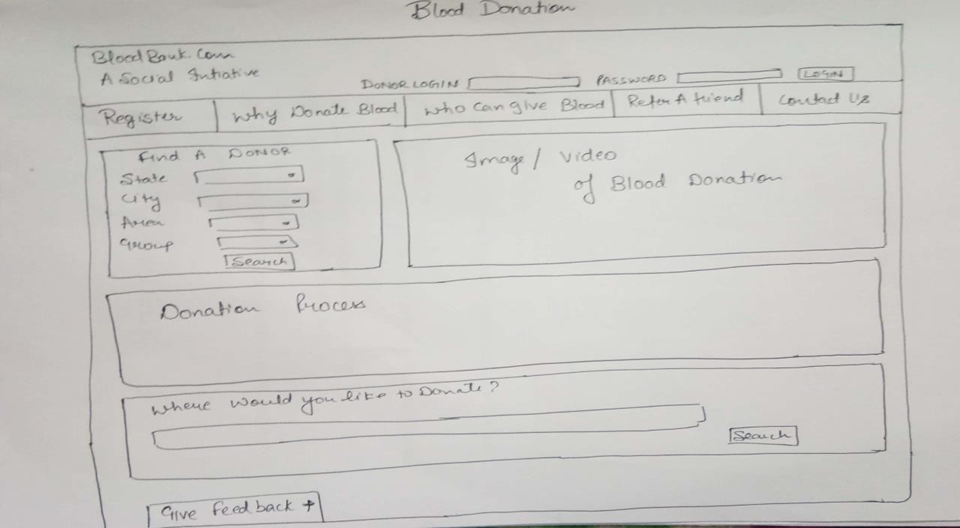 Blood Donation
BloodBank.com
A Social Initiative
DONOR LOGIN PASSWORD LOGIN
Register Why Donate Blood Who Can give Blood Refer A friend Contact Us
Find A DONOR
State
City
Area
Group
Search
Image / Video
of Blood Donation
Donation Process
Where would you like to Donate?
Search
Give feedback +